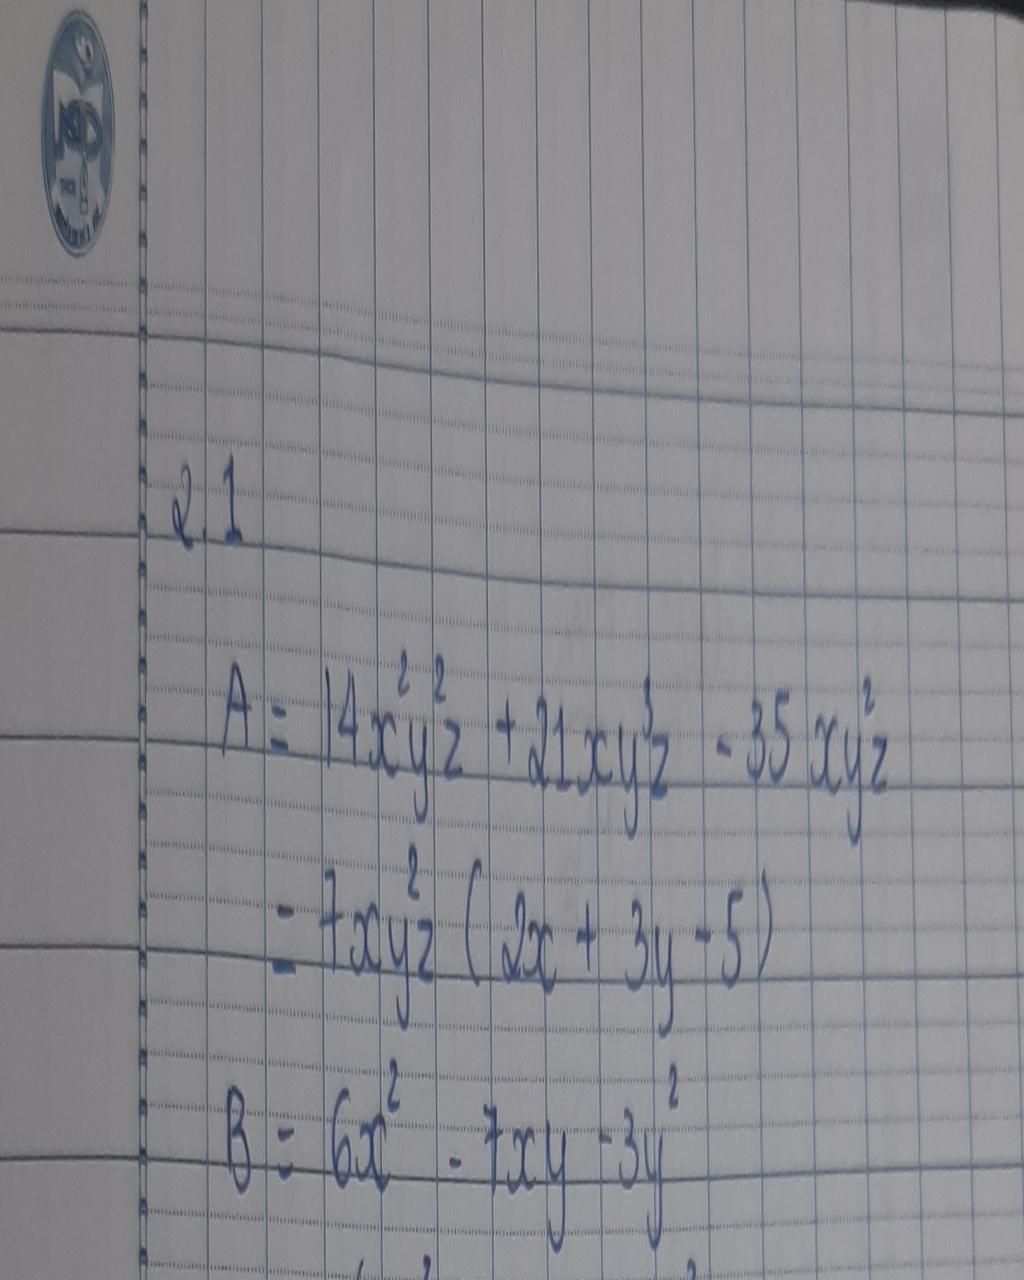 2.1
A = 14x²y²z + 21xy³z - 35xy²z
= 7xy²z (2x + 3y - 5)
B = 6x² - 7xy - 3y²